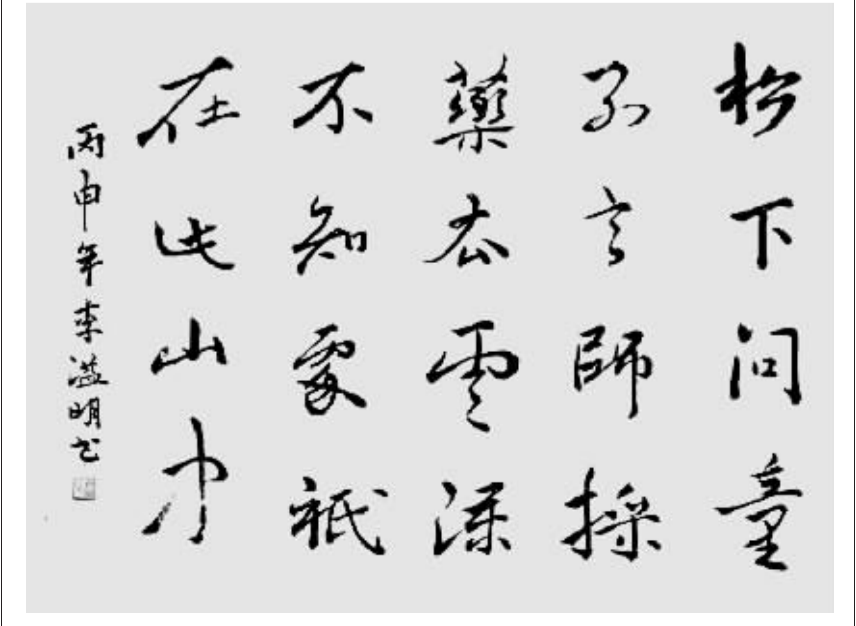 松下问童
子言師採
藥去雲深
不知處祇
在此山中
丙申年李溢明书